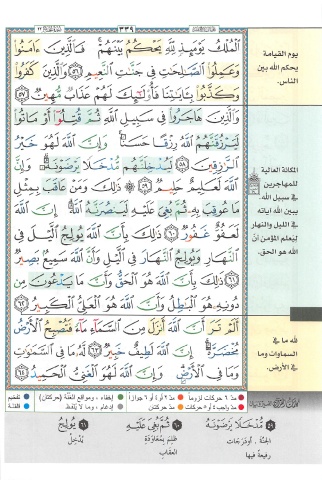 ٣٣٩
ٱلْمُلْكُ يَوْمَئِذٍ لِّلَّهِ يَحْكُمُ بَيْنَهُمْ ۚ فَٱلَّذِينَ ءَامَنُوا۟
وَعَمِلُوا۟ ٱلصَّٰلِحَٰتِ فِى جَنَّٰتِ ٱلنَّعِيمِ ٥٦ وَٱلَّذِينَ كَفَرُوا۟
وَكَذَّبُوا۟ بِـَٔايَٰتِنَا فَأُو۟لَٰٓئِكَ لَهُمْ عَذَابٌ مُّهِينٌ ٥٧
وَٱلَّذِينَ هَاجَرُوا۟ فِى سَبِيلِ ٱللَّهِ ثُمَّ قُتِلُوٓا۟ أَوْ مَاتُوا۟
لَيَرْزُقَنَّهُمُ ٱللَّهُ رِزْقًا حَسَنًا ۚ وَإِنَّ ٱللَّهَ لَهُوَ خَيْرُ
ٱلرَّٰزِقِينَ ٥٨ لَيُدْخِلَنَّهُم مُّدْخَلًا يَرْضَوْنَهُۥ ۗ وَإِنَّ
ٱللَّهَ لَعَلِيمٌ حَلِيمٌ ٥٩ ۞ ذَٰلِكَ وَمَنْ عَاقَبَ بِمِثْلِ
مَا عُوقِبَ بِهِۦ ثُمَّ بُغِىَ عَلَيْهِ لَيَنصُرَنَّهُ ٱللَّهُ ۗ إِنَّ ٱللَّهَ
لَعَفُوٌّ غَفُورٌ ٦٠ ذَٰلِكَ بِأَنَّ ٱللَّهَ يُولِجُ ٱلَّيْلَ فِى
ٱلنَّهَارِ وَيُولِجُ ٱلنَّهَارَ فِى ٱلَّيْلِ وَأَنَّ ٱللَّهَ سَمِيعٌۢ بَصِيرٌ
٦١ ذَٰلِكَ بِأَنَّ ٱللَّهَ هُوَ ٱلْحَقُّ وَأَنَّ مَا يَدْعُونَ مِن
دُونِهِۦ هُوَ ٱلْبَٰطِلُ وَأَنَّ ٱللَّهَ هُوَ ٱلْعَلِىُّ ٱلْكَبِيرُ ٦٢
أَلَمْ تَرَ أَنَّ ٱللَّهَ أَنزَلَ مِنَ ٱلسَّمَآءِ مَآءً فَتُصْبِحُ ٱلْأَرْضُ
مُخْضَرَّةً ۗ إِنَّ ٱللَّهَ لَطِيفٌ خَبِيرٌ ٦٣ لَّهُۥ مَا فِى ٱلسَّمَٰوَٰتِ
وَمَا فِى ٱلْأَرْضِ ۗ وَإِنَّ ٱللَّهَ لَهُوَ ٱلْغَنِىُّ ٱلْحَمِيدُ ٦٤
يوم القيامة
يحكم الله بين
الناس.
المكانة العالية
للمهاجرين
في سبيل الله.
يبين الله آياته
في الليل والنهار
ليعلم المؤمن أن
الله هو الحق.
لله ما في
السماوات وما
في الأرض.
مدّ ٦ حركات لزوماً
مدّ ٢ أو ٤ أو ٦ جوازاً
إخفاء، ومواقع الغنّة (حركتان)
تفخيم
مدّ واجب ٤ أو ٥ حركات
مدّ حركتان
إدغام، وما لا يُلفظ
قلقلة
٥٩ مُّدْخَلًا يَرْضَوْنَهُ
الجنّة، أو درجات
رفيعة فيها
٦٠ ثُمَّ بُغِيَ عَلَيْهِ
ظُلِمَ بمعاودة
العقاب
٦١ يُولِجُ
يُدْخِلُ